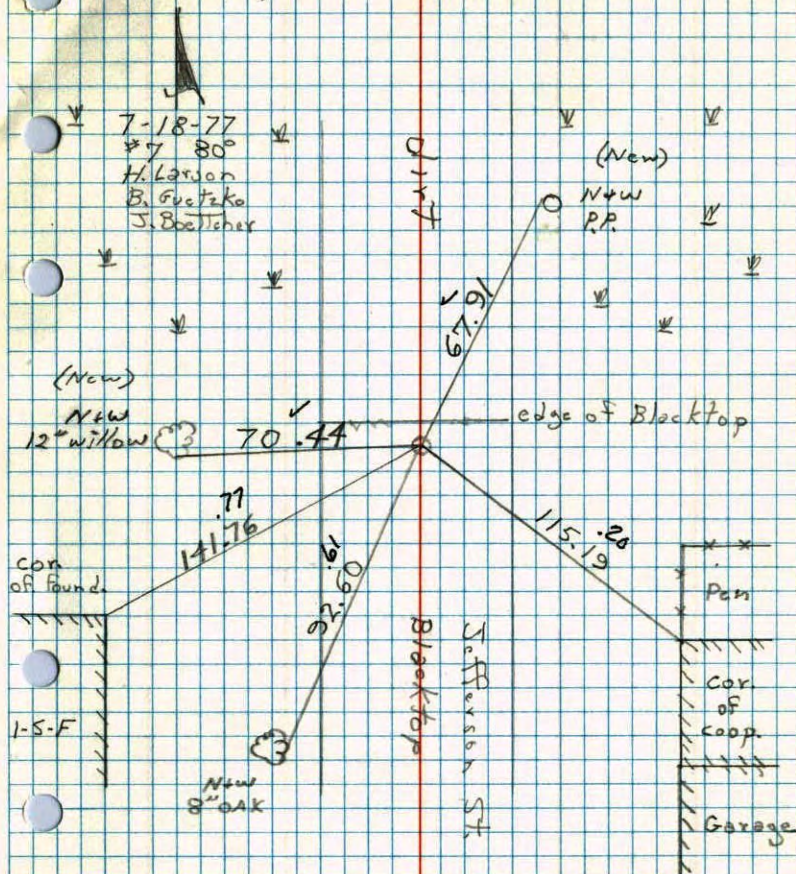 7-18-77
#7 80°
H. Larson
B. Guetzko
J. Boettcher
Dirt
(New)
N+W
P.P.
✓
67.91
(New)
N+W
12" willow
✓
70.44
edge of Blacktop
.77
141.76
.61
92.60
.20
115.19
cor.
of found.
1-S-F
Pen
cor.
of
coop.
Garage
Blacktop
Jefferson St.
N+W
8" OAK